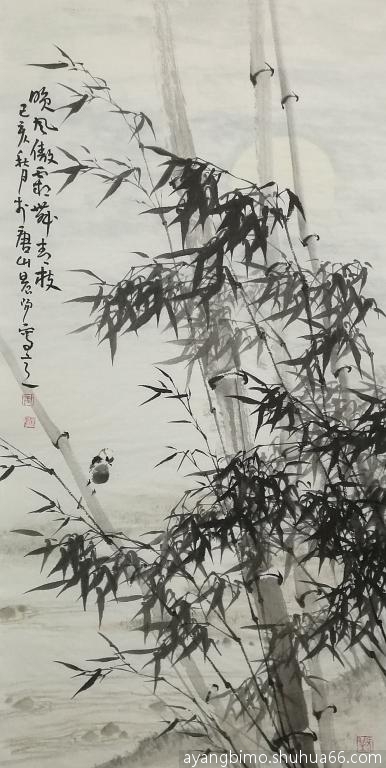 晚风傲霜舞青枝
己亥秋月於唐山寫之
ayangbimo.shuhua66.com